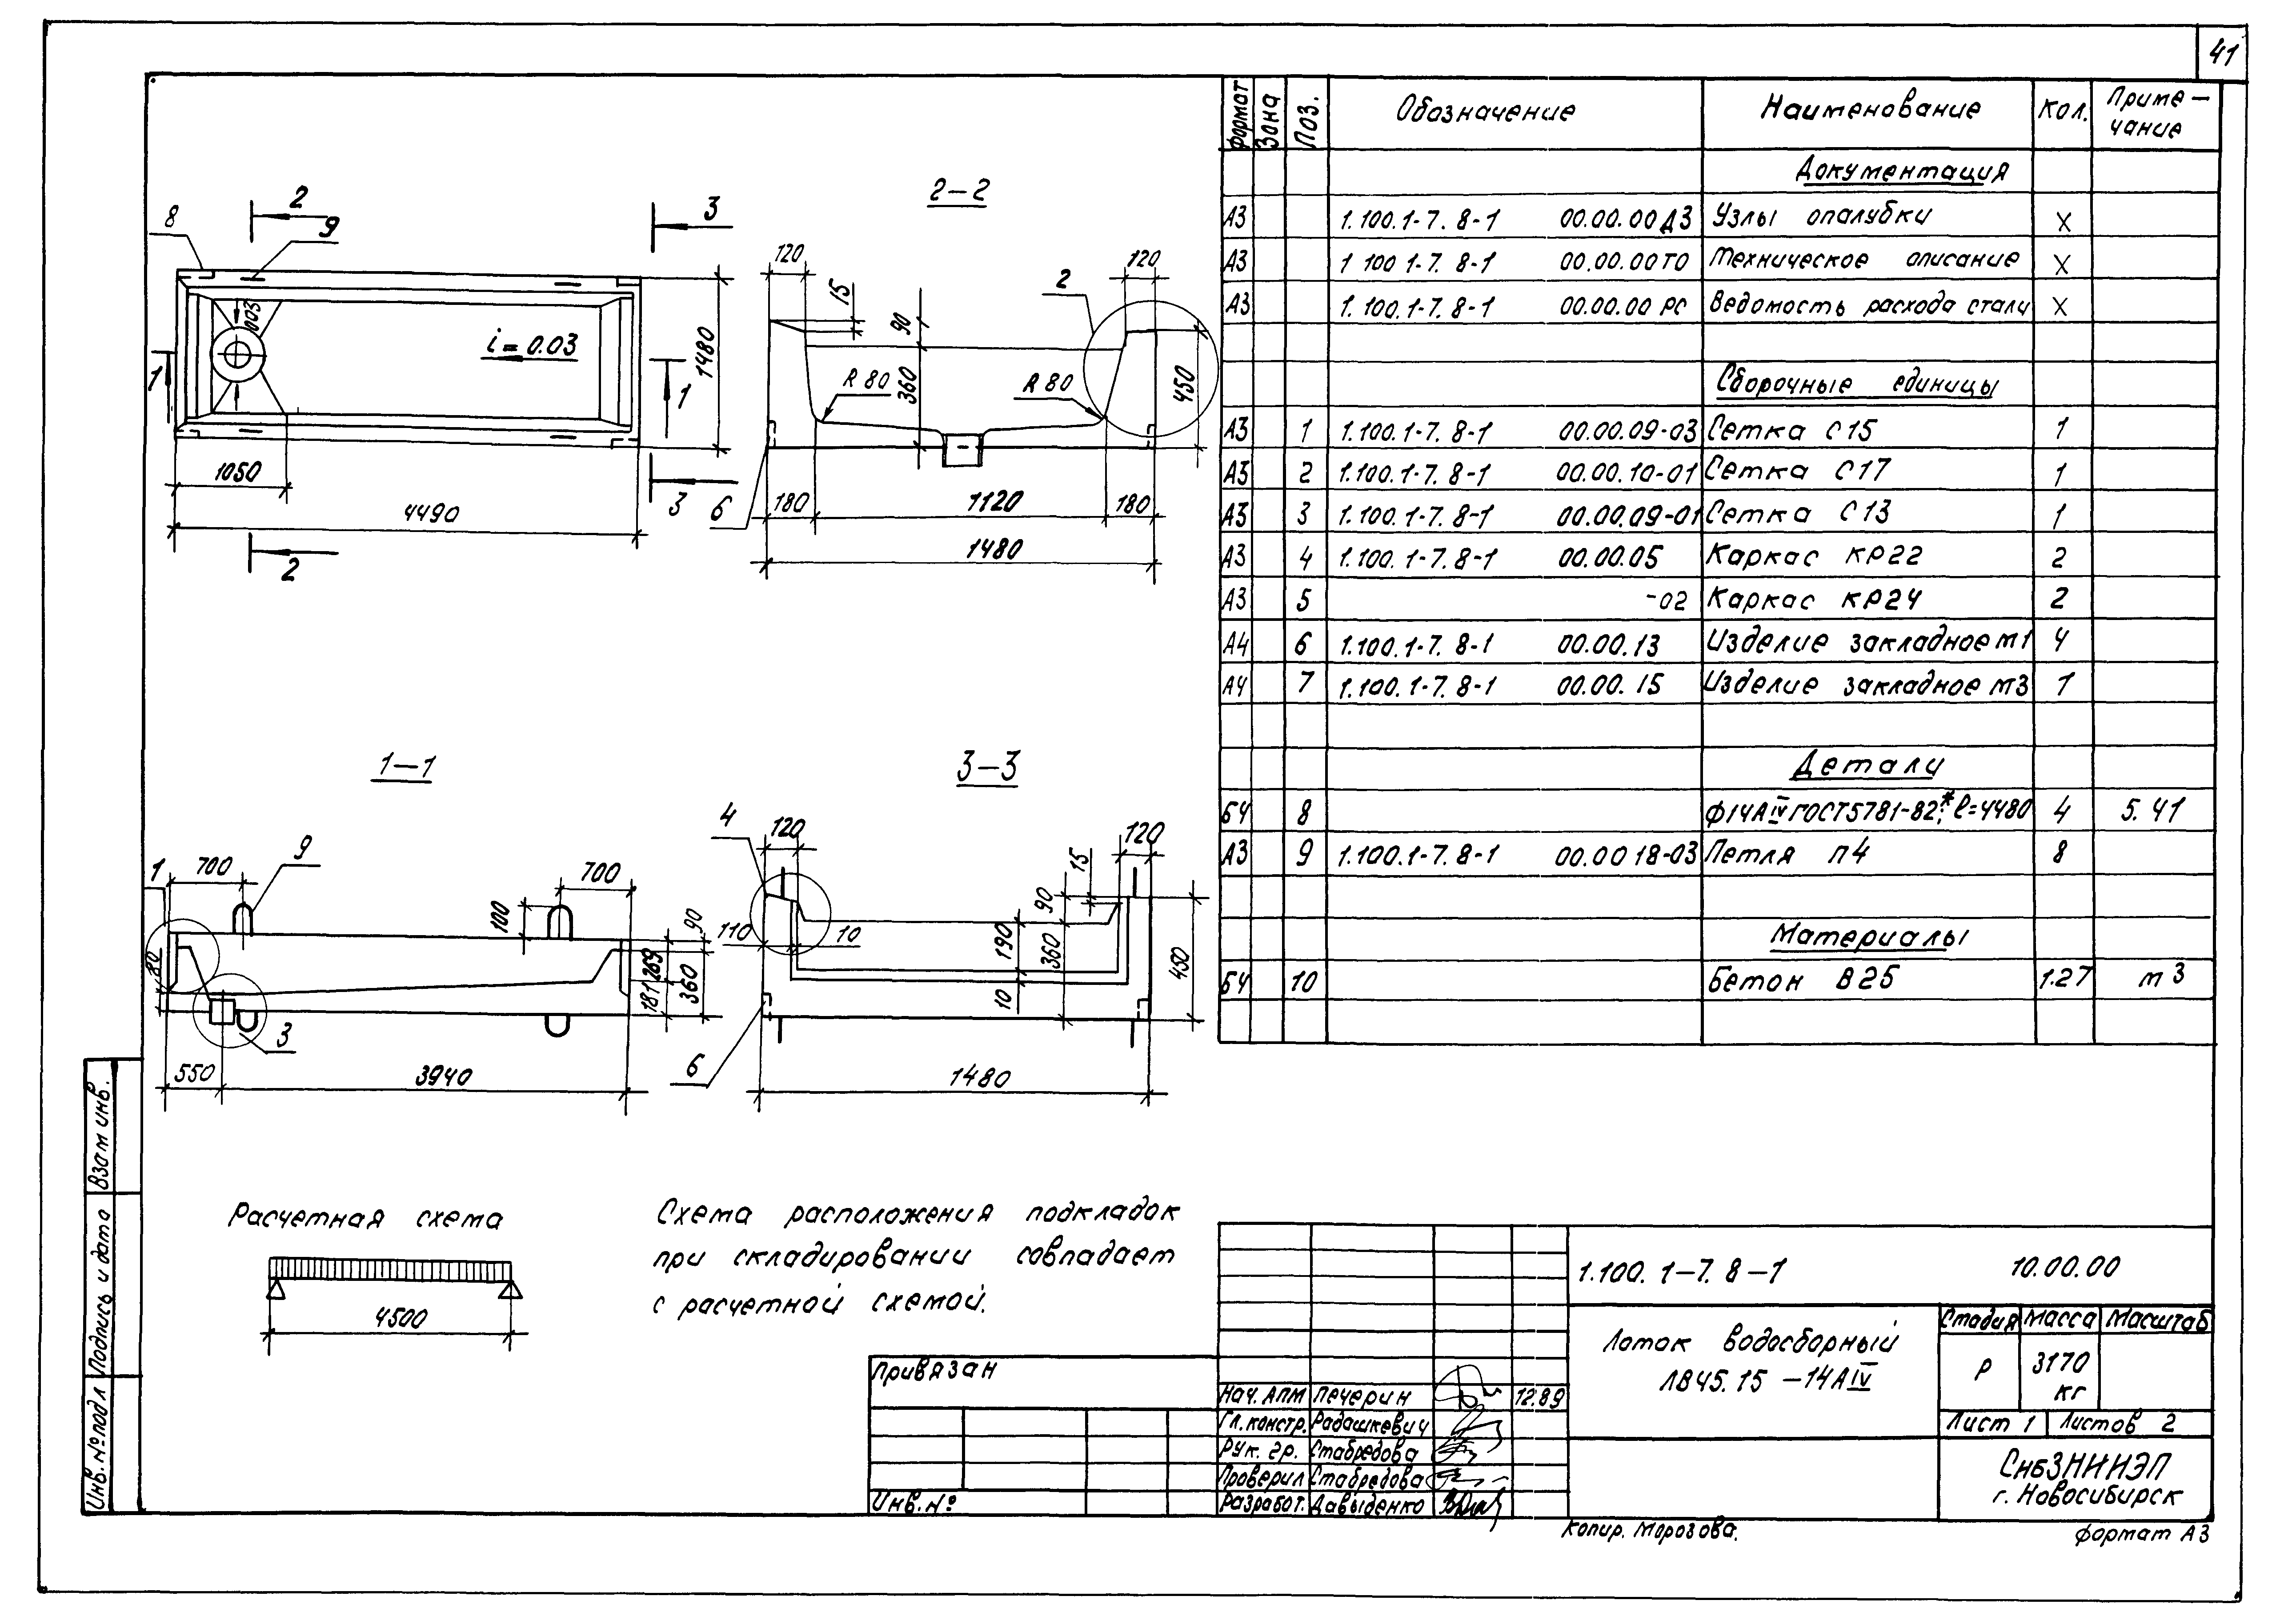 41
формат Зона Поз. Обозначение Наименование Кол. Приме-
чание
Документация
А3 1.100.1-7. 8-1 00.00.00Д3 Узлы опалубки X
А3 1 100 1-7. 8-1 00.00.00ТО Техническое описание X
А3 1. 100.1-7. 8-1 00.00.00 РС Ведомость расхода стали X
Сборочные единицы
А3 1 1.100.1-7. 8-1 00.00.09-03 Сетка С15 1
А3 2 1.100.1-7. 8-1 00.00.10-01 Сетка С17 1
А3 3 1.100.1-7. 8-1 00.00.09-01 Сетка С13 1
А3 4 1.100.1-7. 8-1 00.00.05 Каркас КР22 2
А3 5 -02 Каркас КР24 2
А4 6 1.100.1-7. 8-1 00.00.13 Изделие закладное М1 4
А4 7 1.100.1-7. 8-1 00.00.15 Изделие закладное М3 1
Детали
БЧ 8 Ф14АIV ГОСТ5781-82*; ℓ=4480 4 5.41
А3 9 1.100.1-7. 8-1 00.00 18-03 Петля П4 8
Материалы
БЧ 10 Бетон В25 1.27 м3
2 9 8 3
ФОО3
i=0.03
1 1 1480
1050
4490
3
2
2-2
120 15 90 360 R 80 R 80 120 2 450
6 180 1120 180
1480
1-1
1 700 9 700 100 90
80 269 181 360
3
550 3940
3-3
4 120 15 120 90
110 10 190 360 450
10
6 1480
Расчетная схема
4500
Схема расположения подкладок
при складировании совпадает
с расчетной схемой.
Взам инв.
Подпись и дата
Инв.№подл
Привязан
Инв.№
Нач. АПМ Печерин 12.89
Гл.констр. Радашкевич
Рук. гр. Стабредова
Проверил Стабредова
Разработ. Давыденко
1.100. 1-7. 8-1 10.00.00
Лоток водосборный
ЛВ45.15 -14АIV
Стадия Масса Масштаб
Р 3170
кг
Лист 1 Листов 2
СибЗНИИЭП
г. Новосибирск
Копир. Морозова. формат А3